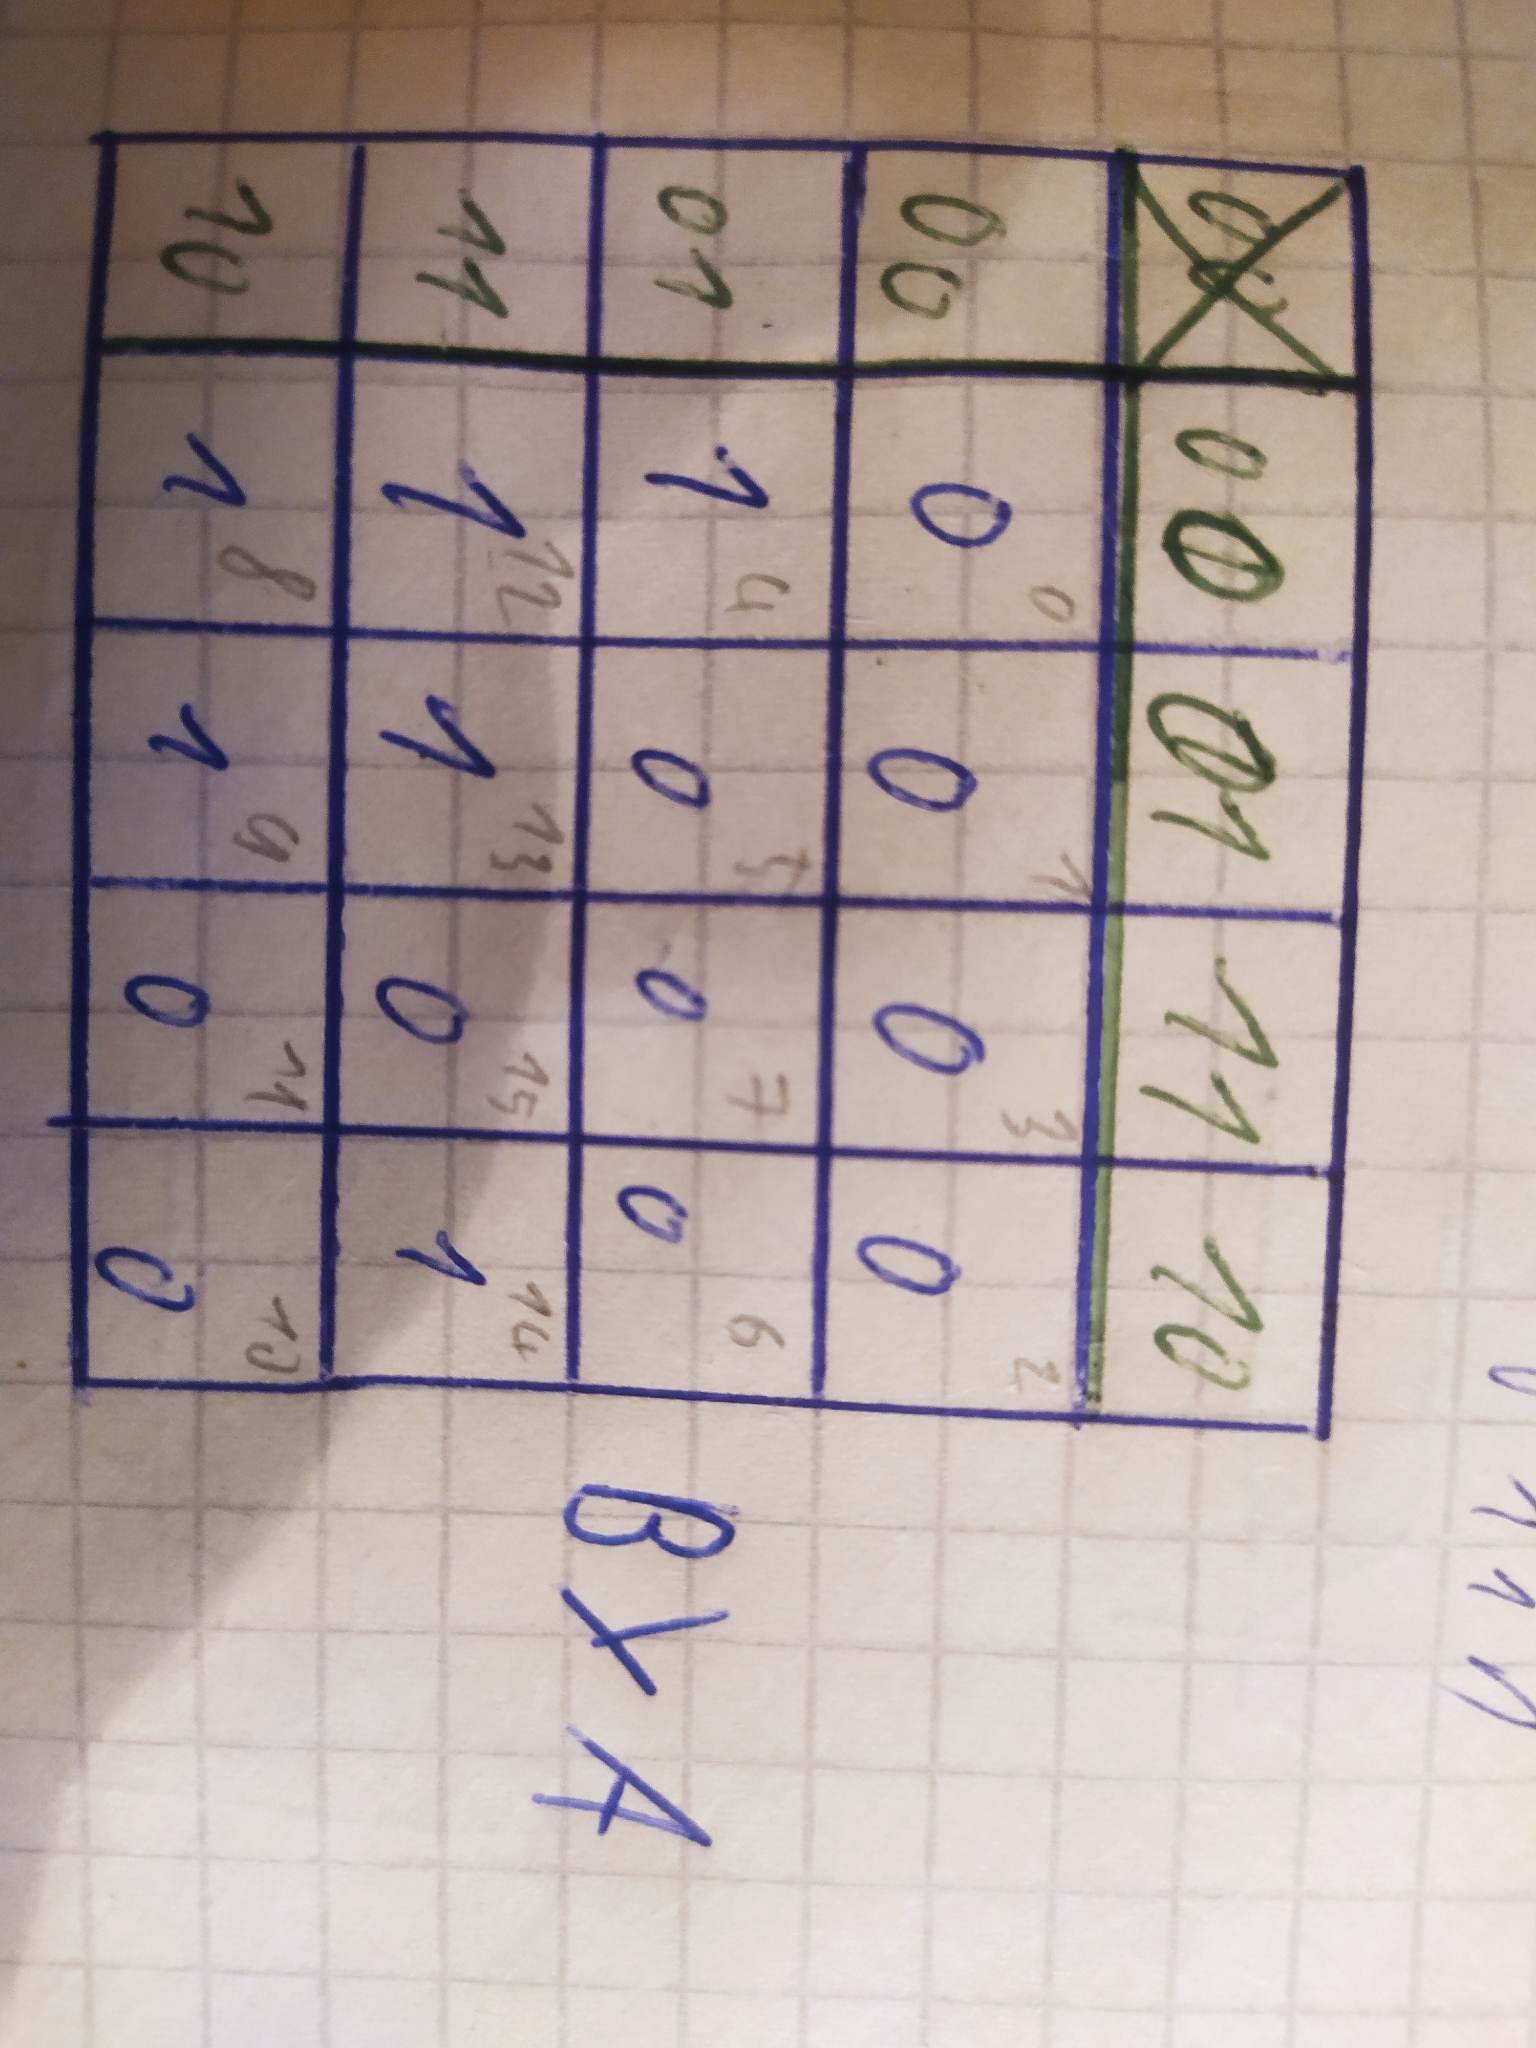 00 01 11 10
00 0 0 0 1 0 3 0 2
01 1 4 0 5 0 7 0 6
11 1 12 1 13 0 15 1 14
10 1 8 1 9 0 11 0 10
B X A